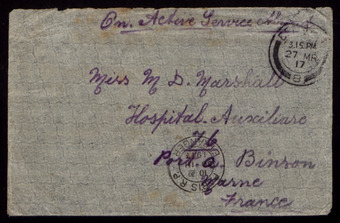 On Active Service
3.15 PM
27 MR
17
Miss M D. Marshall
Hospital Auxiliare
76
Port a Binson
Marne
France